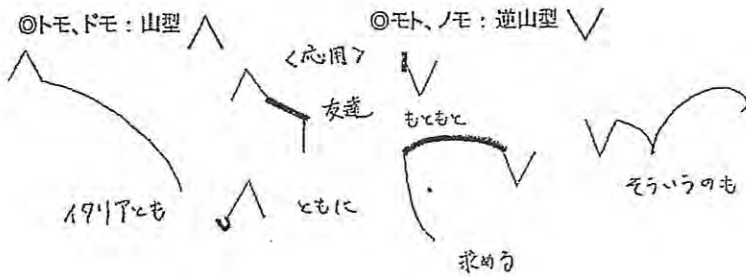 ◎トモ、ドモ：山型
◎モト、ノモ：逆山型
〈応用〉
友達
もともと
イタリアとも
ともに
そういうのも
求める